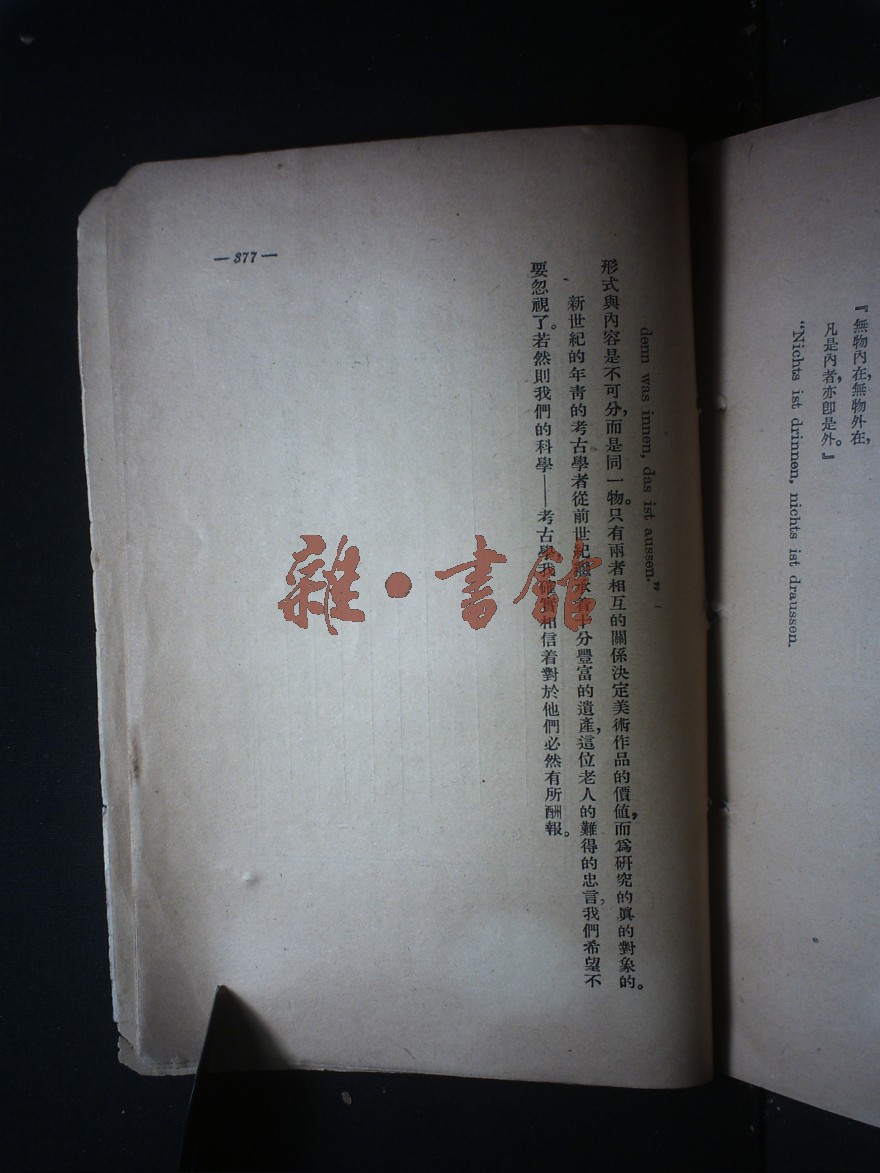 『無物內在，無物外在，
凡是內者，亦卽是外。』
"Nichts ist drinnen, nichts ist draussen.
denn was innen, das ist aussen."
形式與內容是不可分，而是同一物。只有兩者相互的關係決定美術作品的價値，而爲硏究的眞的對象的。
新世紀的年靑的考古學者從前世紀繼承着十分豐富的遺產，這位老人的難得的忠言，我們希望不
要忽視了。若然則我們的科學——考古學我確實相信着對於他們必然有所酬報。
— 377 —
雜·書館